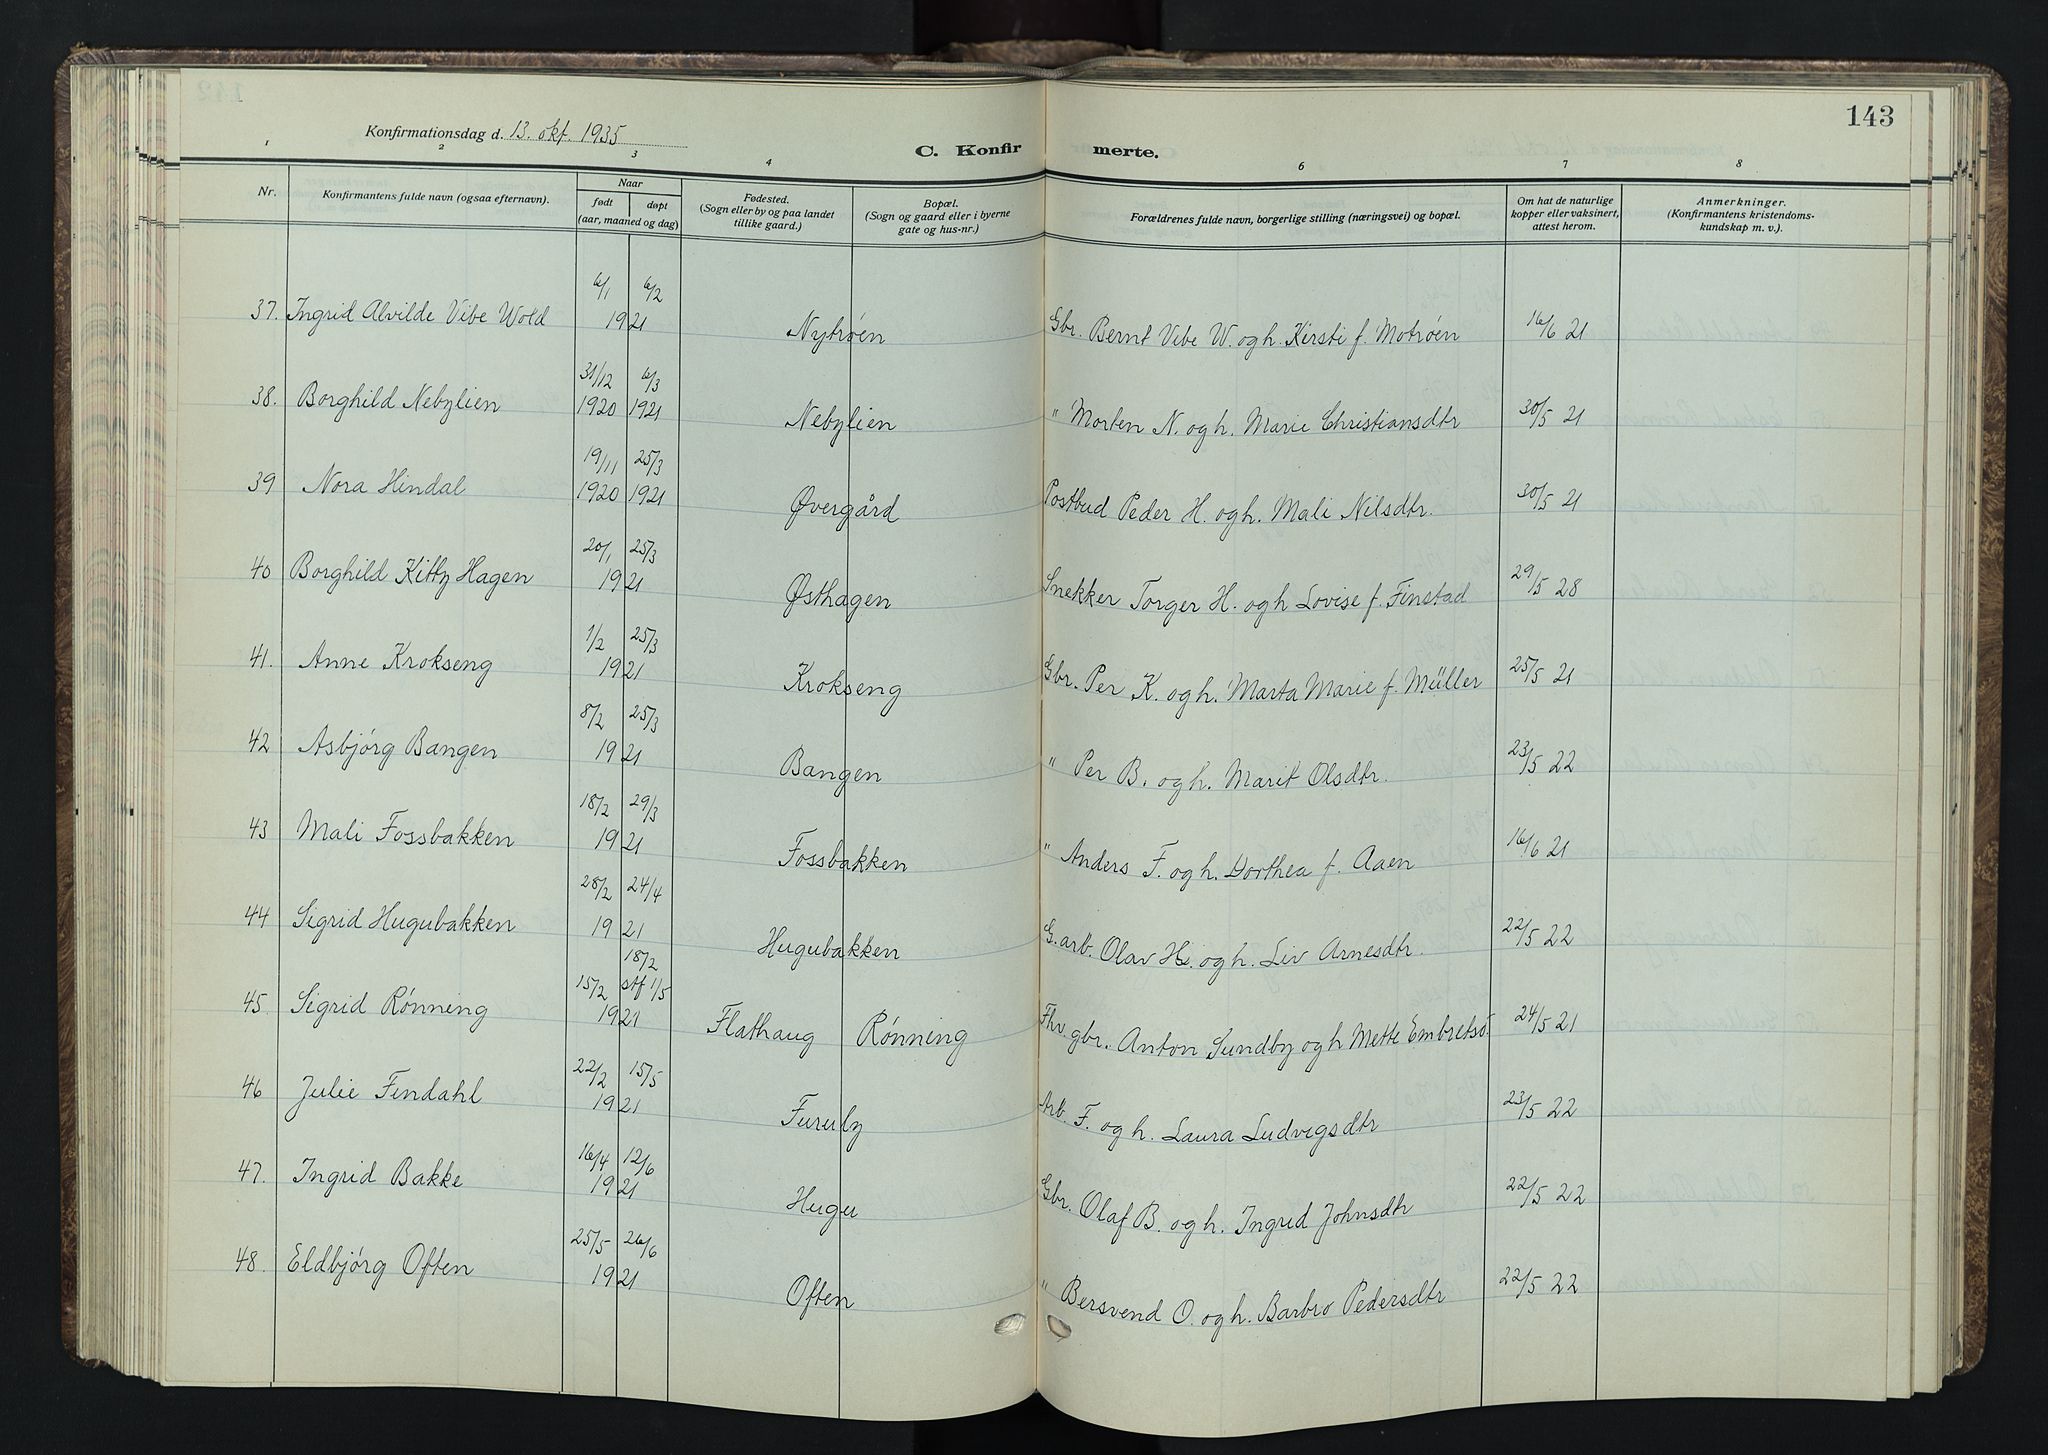 143
Konfirmationsdag d. 13. okt. 1935
C. Konfirmerte.
1 2 3 4 6 7 8
Nr.
Konfirmantens fulde navn (ogsaa efternavn).
Naar
født døpt
(aar, maaned og dag)
Fødested.
(Sogn eller by og paa landet
tillike gaard.)
Bopæl.
(Sogn og gaard eller i byerne
gate og hus-nr.)
Forældrenes fulde navn, borgerlige stilling (næringsvei) og bopæl.
Om hat de naturlige
kopper eller vaksinert,
attest herom.
Anmerkninger.
(Konfirmantens kristendoms-
kundskap m. v.).
6/1 6/2
37. Ingrid Alvilde Vibe Wold 1921 Nytrøen Gbr. Bernt Vibe W. og h. Kirsti f. Motrøen 16/6 21
31/12 6/3
38. Borghild Nebylien 1920 1921 Nebylien " Morten N. og h. Marie Christiansdtr 30/5 21
19/11 25/3
39 Nora Hindal 1920 1921 Øvergård Postbud Peder H. og h. Mali Nilsdtr. 30/5 21
20/1 25/3
40 Borghild Kitty Hagen 1921 Østhagen Snekker Torger H. og h Lovise f. Finstad 29/5 28
1/2 25/3
41. Anne Krokseng 1921 Krokseng Gbr. Per K. og h. Marta Marie f. Müller 25/5 21
8/2 25/3
42 Asbjørg Bangen 1921 Bangen " Per B. og h. Marit Olsdtr. 23/5 22
18/2 29/3
43 Mali Fossbakken 1921 Fossbakken " Anders F. og h. Dorthea f. Aaen 16/6 21
28/2 24/4
44 Sigrid Hugubakken 1921 Hugubakken G. arb. Olav H. og h. Liv Arnesdtr. 22/5 22
18/2
15/2 stf 1/5
45. Sigrid Rønning 1921 Flathaug Rønning Fhv. gbr. Anton Sundby og h Mette Embretsd. 24/5 21
22/2 15/5
46 Julie Findahl 1921 Furuly Arb. F. og h. Laura Ludvigsdtr 23/5 22
16/4 12/6
47. Ingrid Bakke 1921 Hugu Gbr. Olaf B. og h. Ingrid Johnsdtr 22/5 22
25/5 26/6
48. Eldbjørg Often 1921 Often " Bersvend O. og h. Barbro Pedersdtr 22/5 22